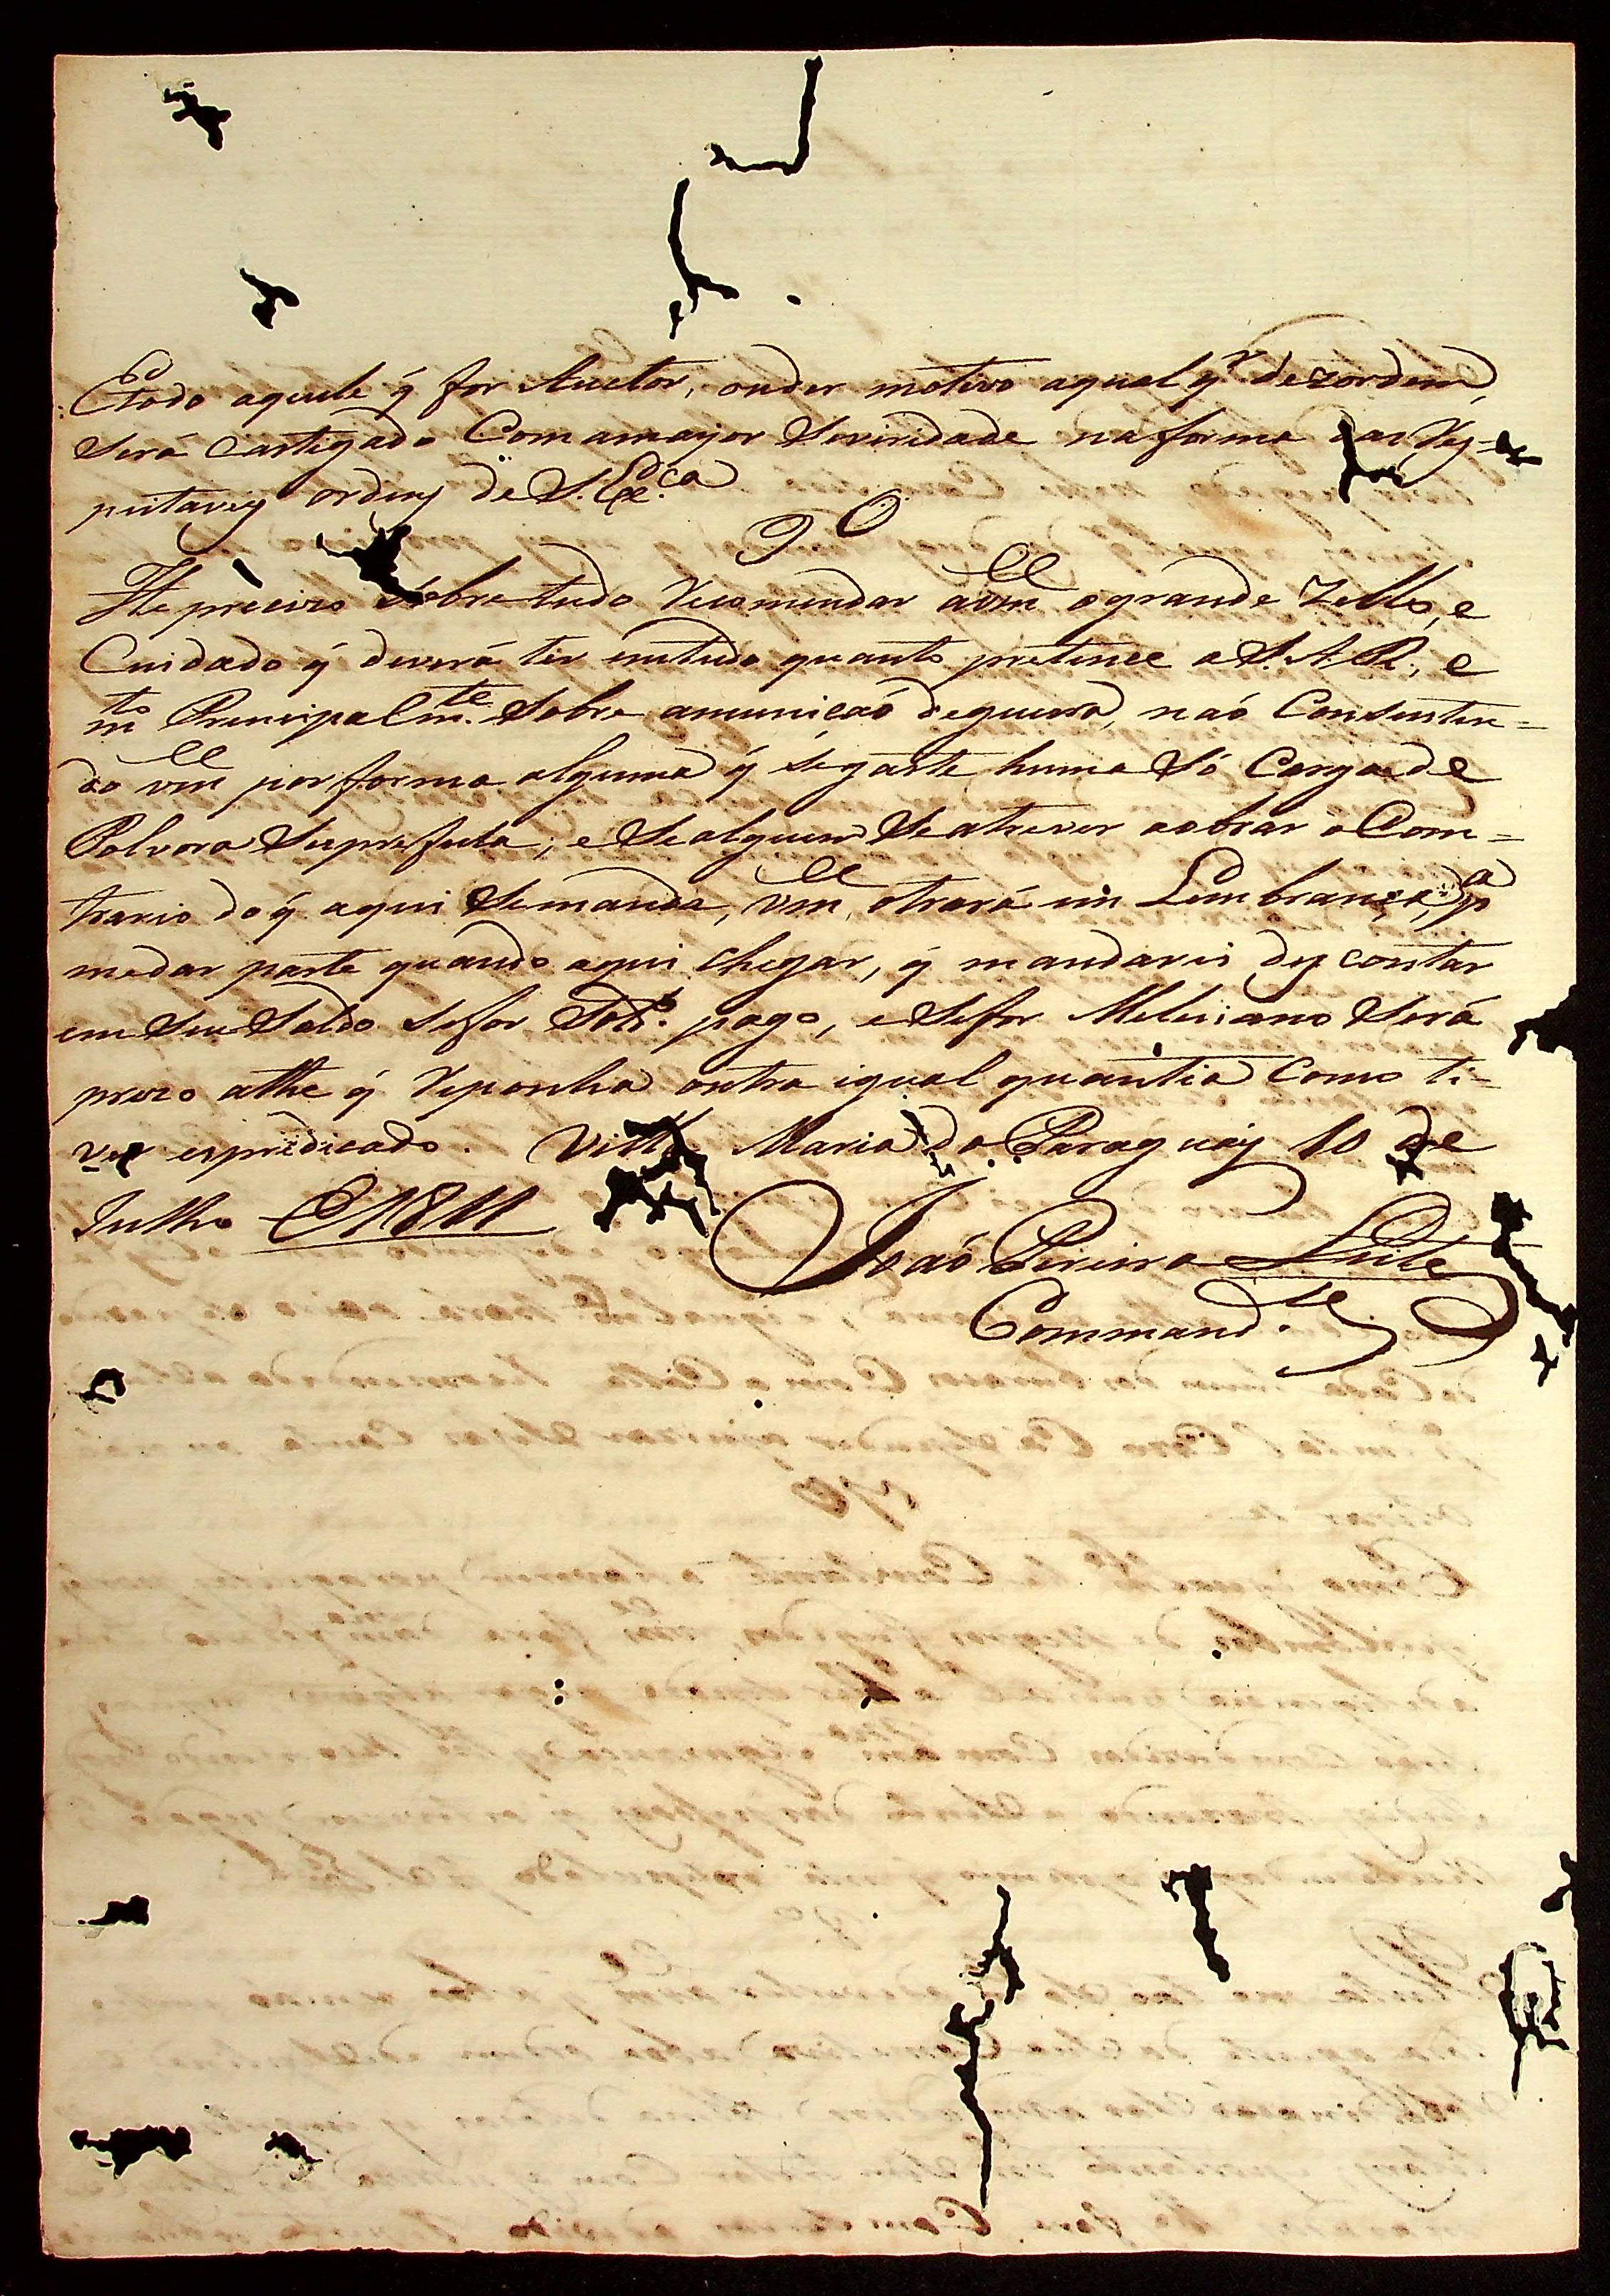 Todo aquele q̃ for Auctor, ouder motivo aqual qr dezordem,
Será castigado Com amayor Siviridade na forma das Rez=
peitaveis ordens de S. Exca
9º
He precizo Sobre tudo Recomendar avmce o grande Zello, e
Cuidado q̃ deverá ter emtudo quanto pretence a S. A. R., e
mto Principalmte Sobre amunição deguerra, não Consentin=
do vmce por forma alguma q̃ segaste huma Só Carga de
Polvora Superfula, e Se alguem Se atrever aobrar o Com=
trario do q̃ aqui Semanda, vmce otrará em Lembrança, pa
medar parte quando aqui chegar, q̃ mandarei descontar
em Seu Soldo Sefor Soldo pago, e Sefor Meleciano Será
prezo athe q̃ Reponha outra igual quantia Como ti=
ver espredicado. Villa Maria do Paraguáy 10 de
Julho de 1811
João Pereira Leite
Commande